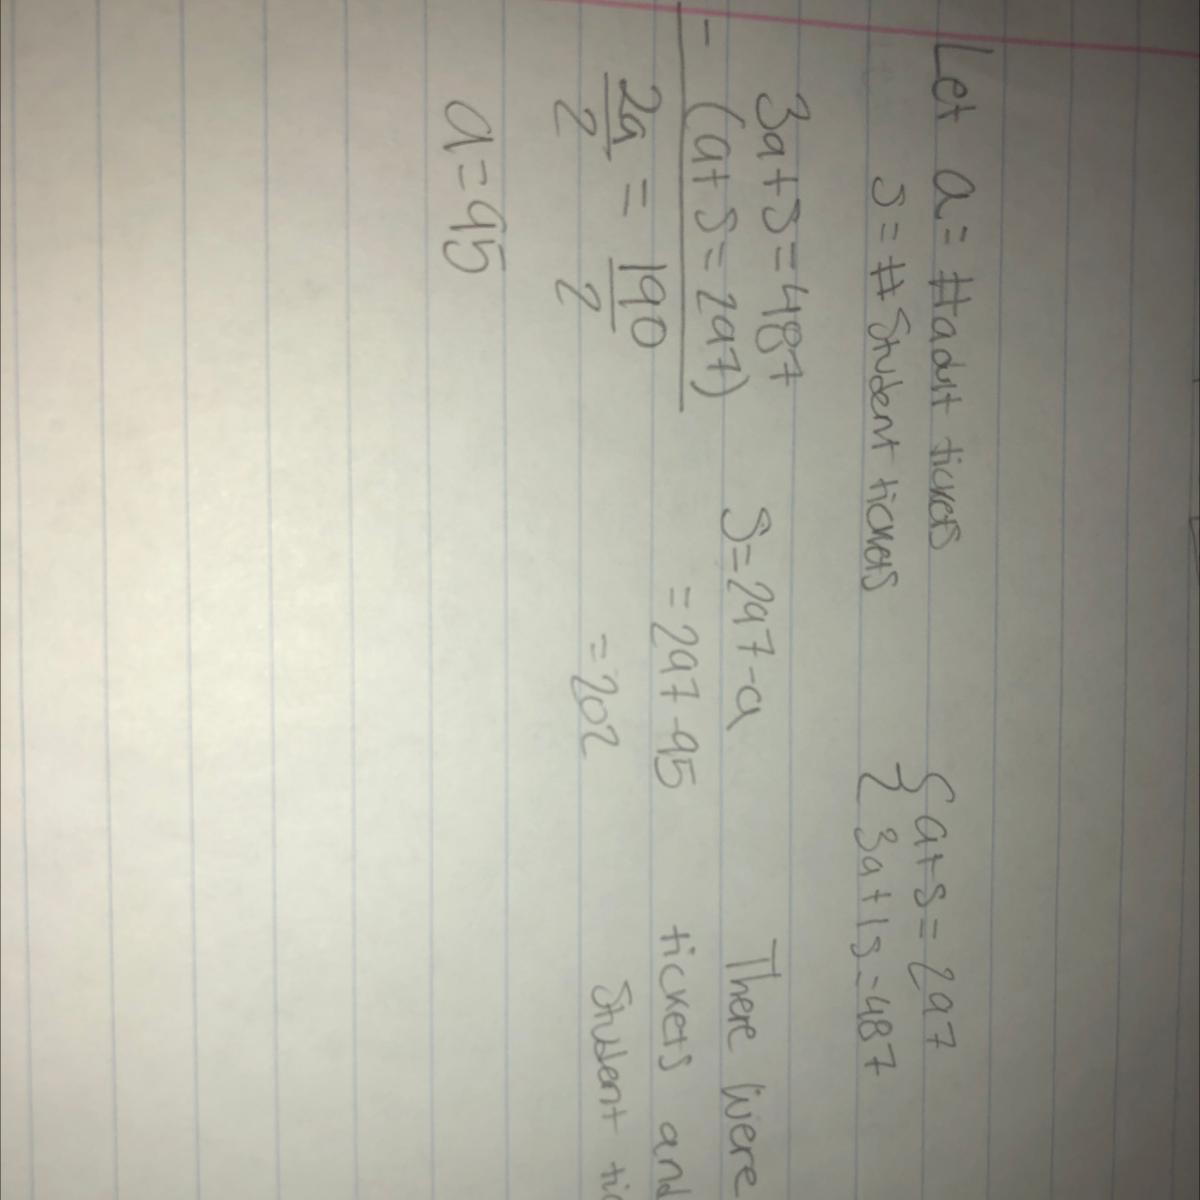 Let a = # adult tickets
s = # Student tickets
{ a+s = 297
3a+1s = 487
3a+s = 487
- (a+s = 297)
2a = 190
2 2
a = 95
s = 297 - a
= 297 - 95
= 202
There were
tickets and
Student